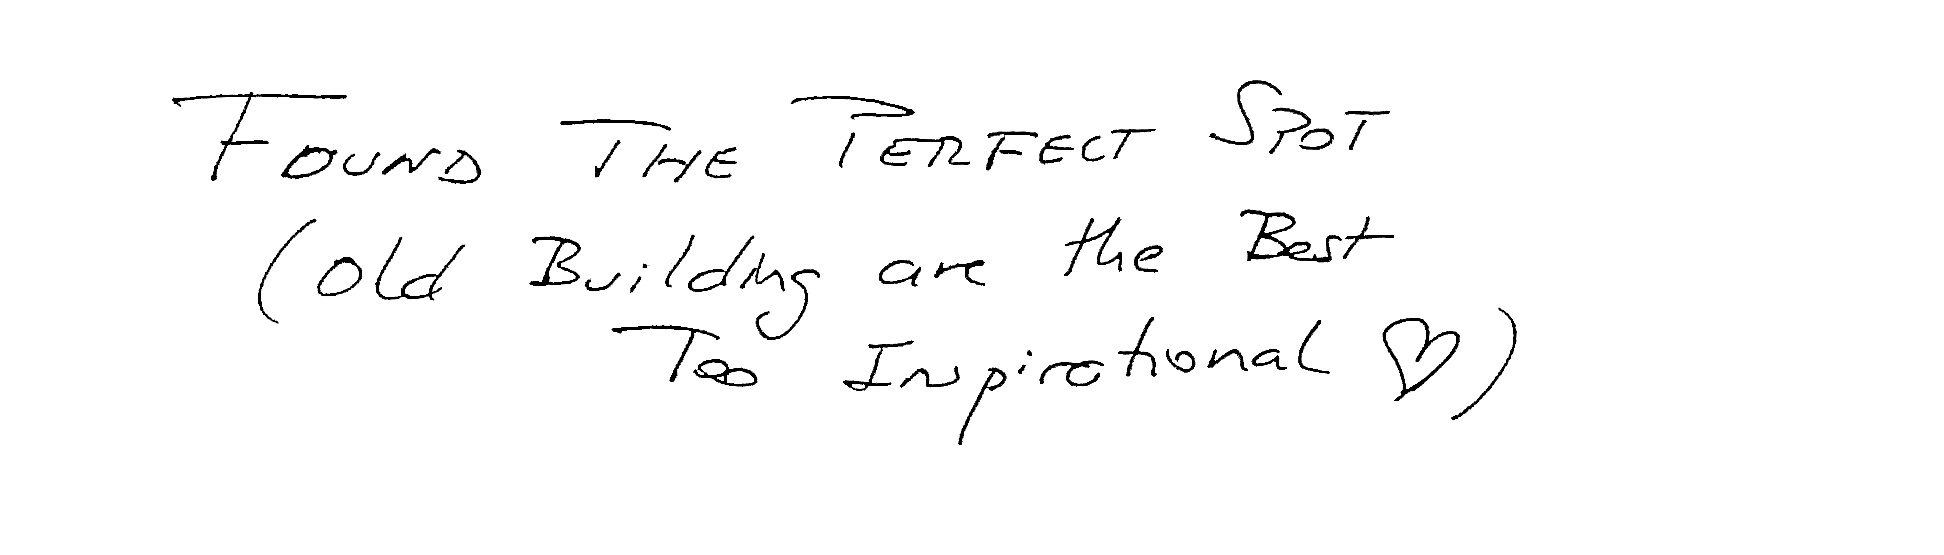 FOUND THE PERFECT SPOT
(old Building are the Best
Too Inspirational ♡)